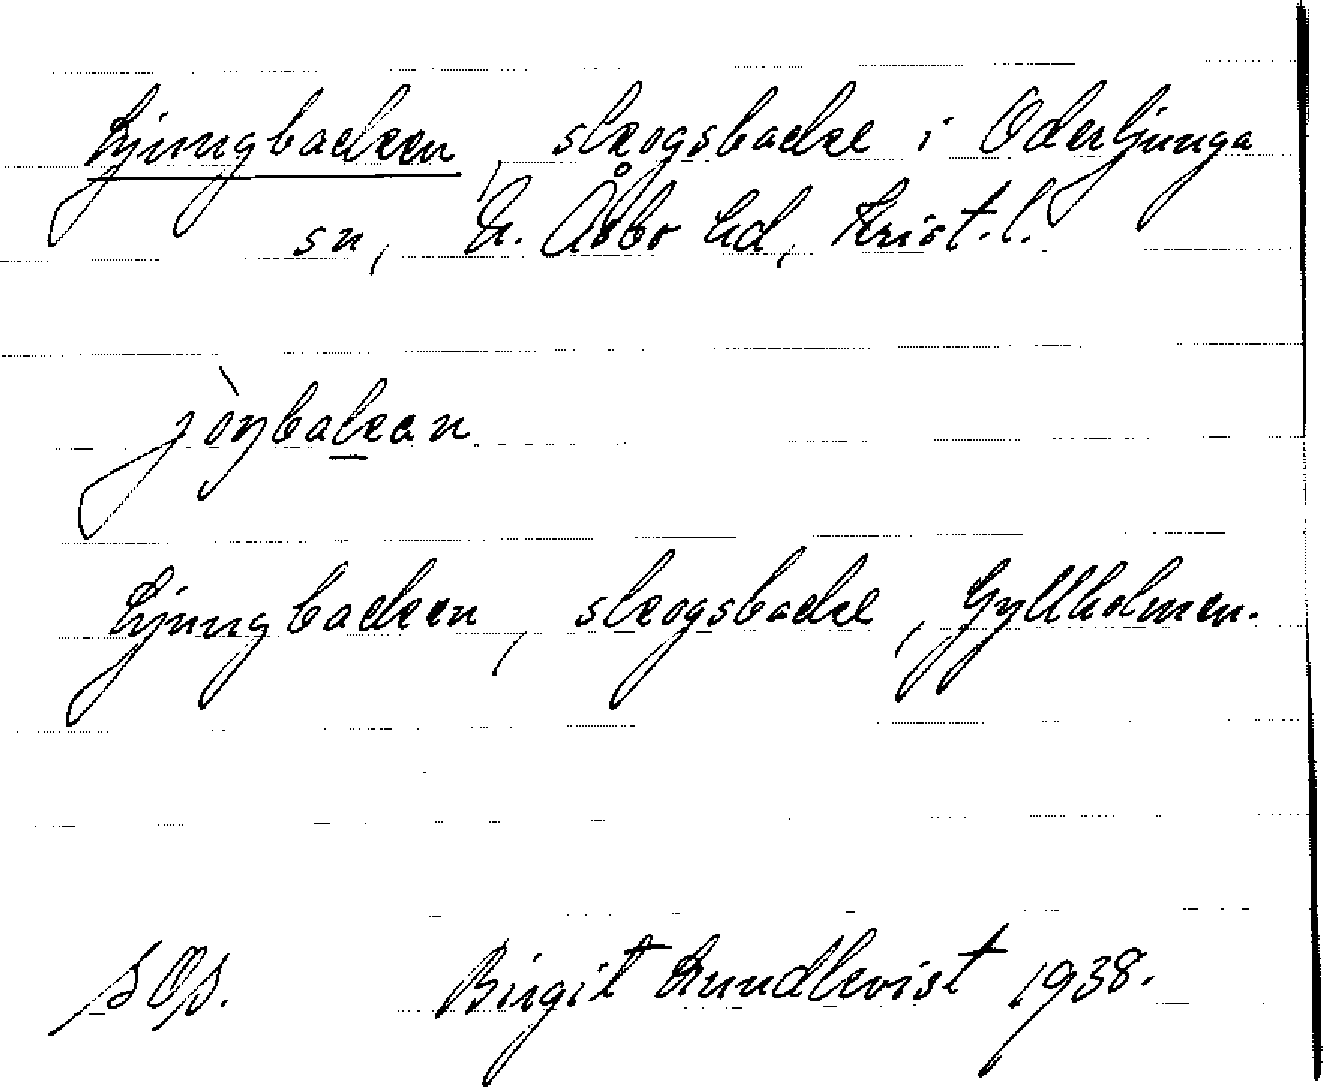 Ljungbacken, skogsbacke i Oderljunga
sn, N. Åsbo hd, Krist. l.
jòŋbakan
Ljungbacken, skogsbacke, Gyllholmen.
Birgit Lundkvist 1938.